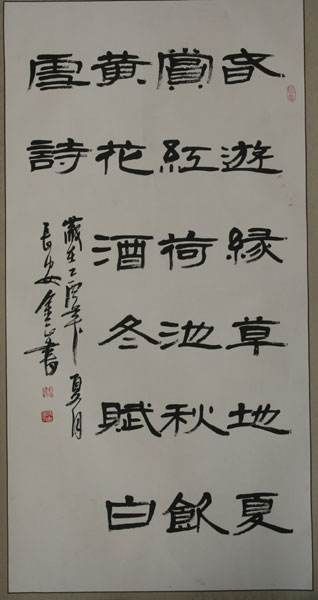 旾遊緑草地夏
賞紅荷池秋飲
黃花酒冬賦白
雪詩
歲在丁酉年夏月
長安金正書